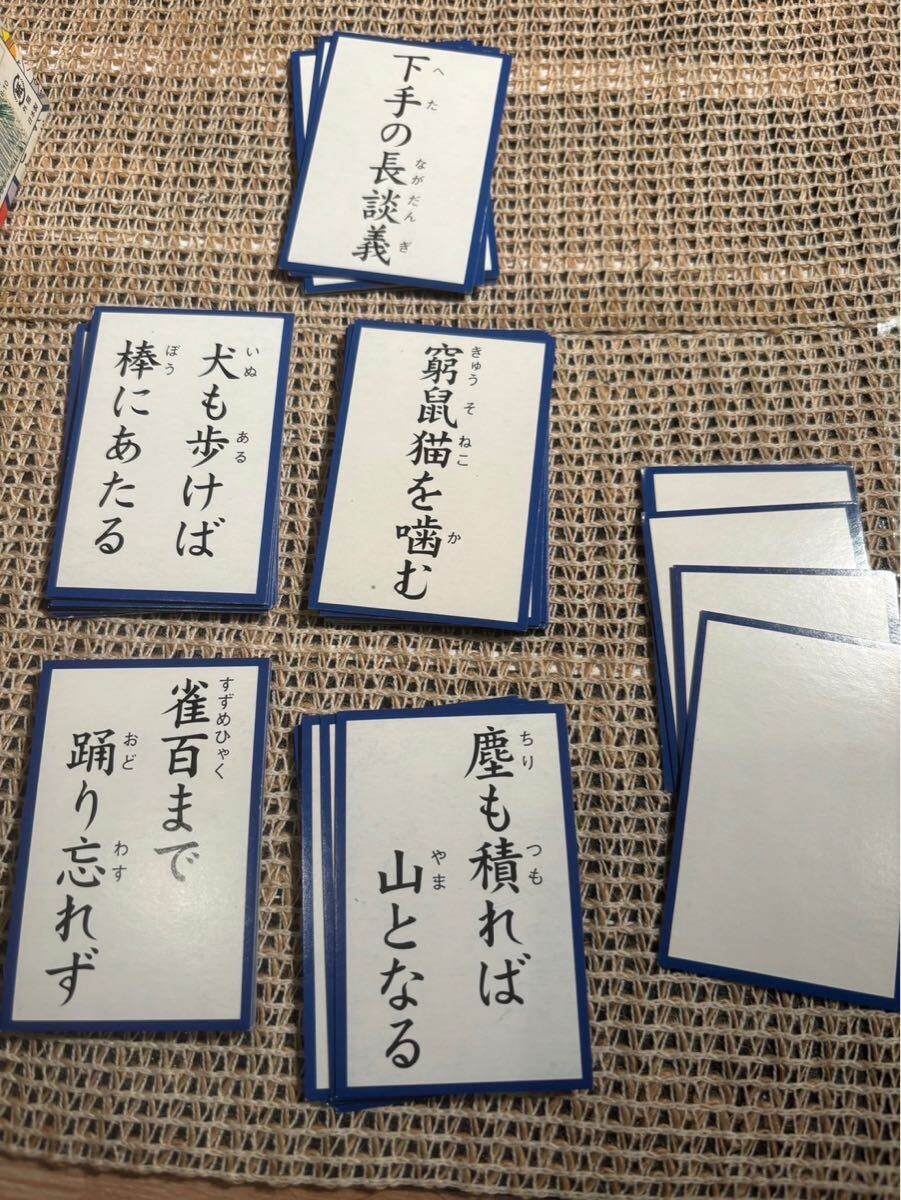 下手の長談義
へた
ながだんぎ
犬も歩けば
いぬ
ある
棒にあたる
ぼう
窮鼠猫を噛む
きゅうそねこ
か
雀百まで
すずめひゃく
踊り忘れず
おど
わす
塵も積れば
ちり
つも
山となる
やま